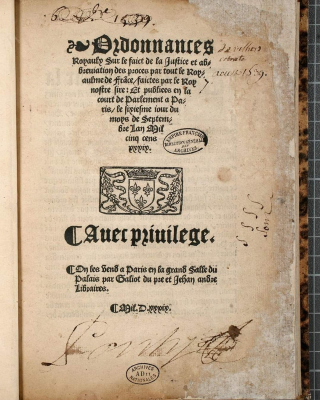 Ordonnances
Royaulx Sur le faict de la Justice et ab
breuiation des proces par tout le Roy-
aulme de Frãce, faictes par le Roy
nostre sire: Et publiees en la
court de Parlement a Pa-
ris, le sixiesme iour du
moys de Septem-
bre Lan Mil
cinq cens
xxxix.
Auec priuilege.
On les vend a Paris en la grand Salle du
Palais par Galiot du pre et Jehan andre
Libraires.
Mil.D.xxxix.
ARCHIVES
NATIONALES